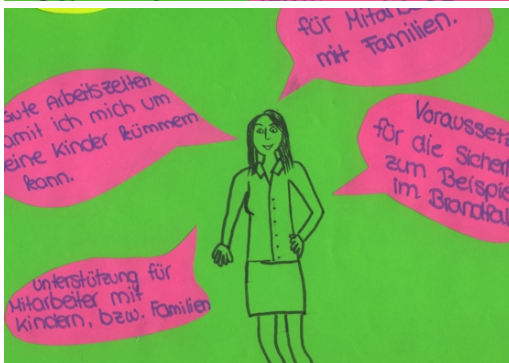 für Mitarbe
mit Familien.
Gute Arbeitszeiten
amit ich mich um
eine Kinder kümmern
kann.
Voraussetz
für die Sicherh
zum Beispie
im Brandfal
Unterstützung für
Mitarbeiter mit
Kindern, bzw. Familien